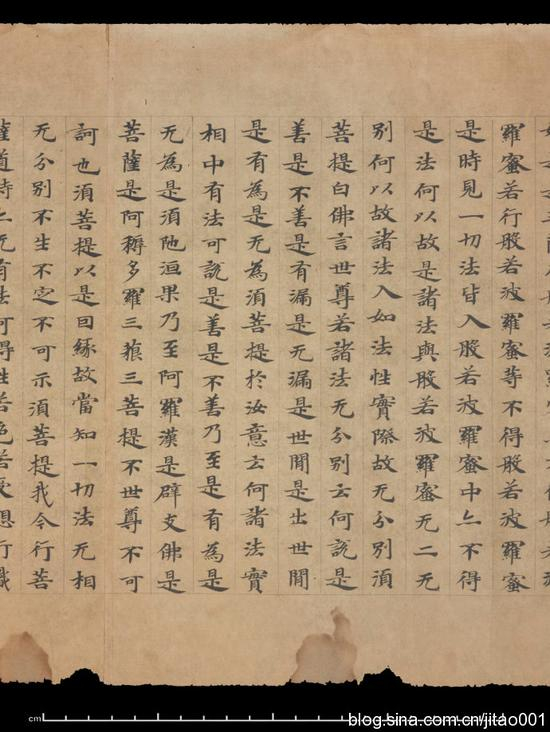 羅蜜若行般若波羅蜜等不得般若波羅蜜
是時見一切法皆入般若波羅蜜中亦不得
是法何以故是諸法與般若波羅蜜无二无
別何以故諸法入如法性實際故无分別須
菩提白佛言世尊若諸法无分別云何說是
善是不善是有漏是无漏是世間是出世間
是有為是无為須菩提於汝意云何諸法實
相中有法可說是善是不善乃至是有為是
无為是須陁洹果乃至阿羅漢是辟支佛是
菩薩是阿耨多羅三藐三菩提不世尊不可
訶也須菩提以是因緣故當知一切法无相
无分別不生不定不可示須菩提我今行菩
薩道時亦无有法可得性若色若受想行識
cm
blog.sina.com.cn/jitao001